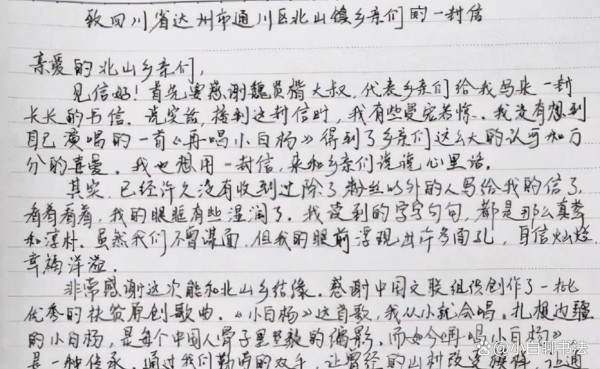 致四川省达州市通川区北山镇乡亲们的一封信
亲爱的北山乡亲们,
见信好!首先要感谢魏贤楷大叔,代表乡亲们给我写来一封
长长的书信。说实话,接到这封信时,我有些受宠若惊。我没有想到
自己演唱的一首《再唱小白杨》得到了乡亲们这么大的认可和万
分的喜爱。我也想用一封信,来和乡亲们说说心里话。
其实,已经许久没有收到过除了粉丝以外的人写给我的信了,
看着看着,我的眼眶有些湿润了。我读到的字字句句,都是那么真挚
和淳朴。虽然我们不曾谋面,但我的眼前浮现出许多面孔,自信灿烂,
幸福洋溢。
非常感谢这次能和北山乡结缘。感谢中国文联组织创作了一批
优秀的扶贫原创歌曲。《小白杨》这首歌,我从小就会唱。扎根边疆
的小白杨,是每个中国人骨子里坚毅的缩影,而如今《再唱小白杨》
是一种传承,通过我们勤劳的双手,让曾经的山村改变模样,让通
@小白聊书法